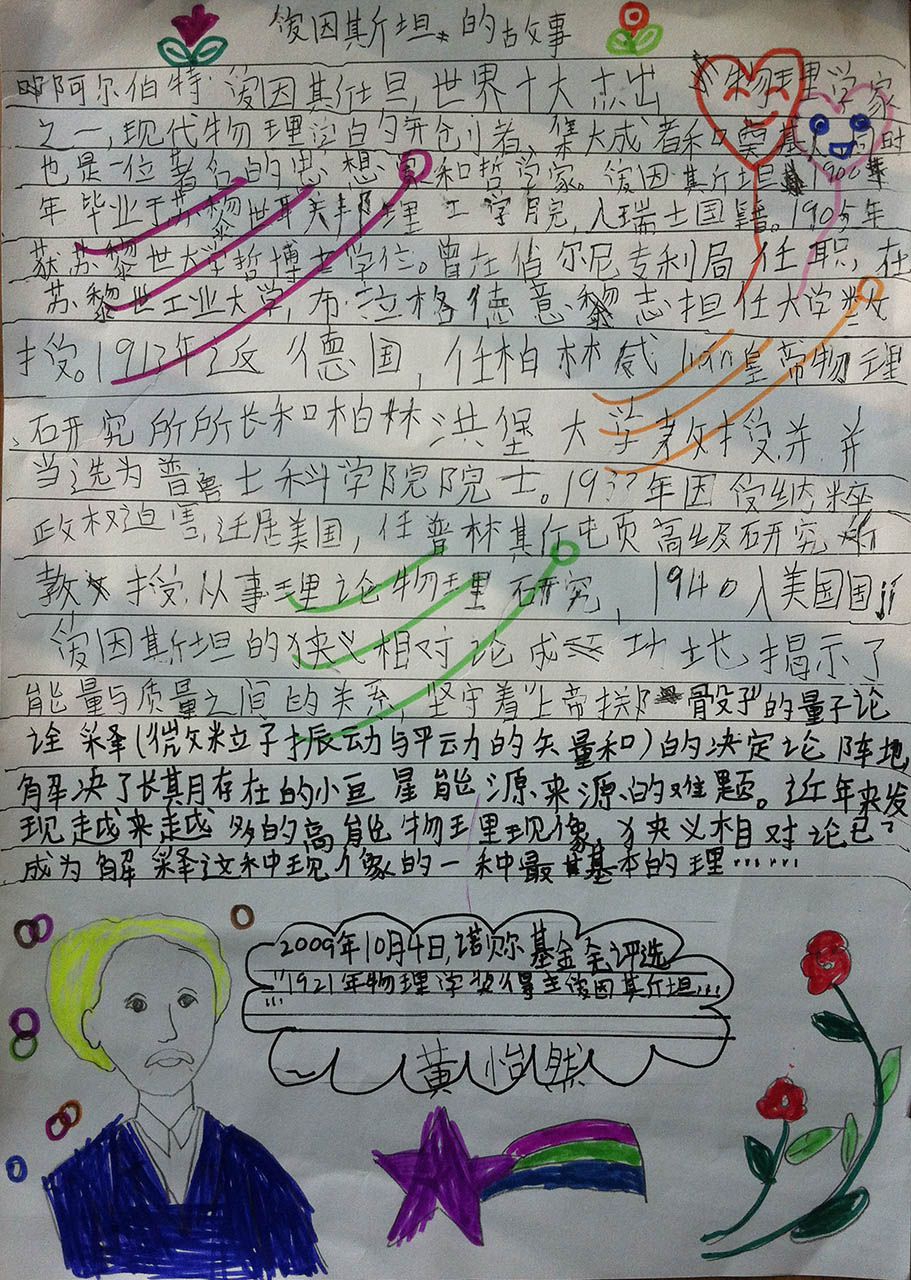 爱因斯坦的故事
阿尔伯特·爱因斯坦,世界十大杰出物理学家
之一,现代物理学的开创者、集大成者和奠基人,同时
也是一位著名的思想家和哲学家。爱因斯坦1900年
年毕业于苏黎世联邦理工学院,入瑞士国籍。1905年
获苏黎世大学哲博士学位。曾在伯尔尼专利局任职,在
苏黎世工业大学,布拉格德意志担任大学教
授。1913年返德国,任柏林威lian皇帝物理
研究所所长和柏林洪堡大学教授,并并
当选为普鲁士科学院院士。1933年因受纳粹
政权迫害,迁居美国,任普林斯顿高级研究所
教授,从事理论物理研究,1940入美国国
爱因斯坦的狭义相对论成功地揭示了
能量与质量之间的关系,坚守着"上帝掷骰子"的量子论
诠释(微粒子振动与平动的矢量和)的决定论阵地
解决了长期存在的小亘星能源来源的难题。近年来发
现越来越多的高能物理现象,狭义相对论已
成为解释这种现象的一种最基本的理……
2009年10月4日,诺贝尔基金会评选
"1921年物理学奖得主爱因斯坦…
黄怡然